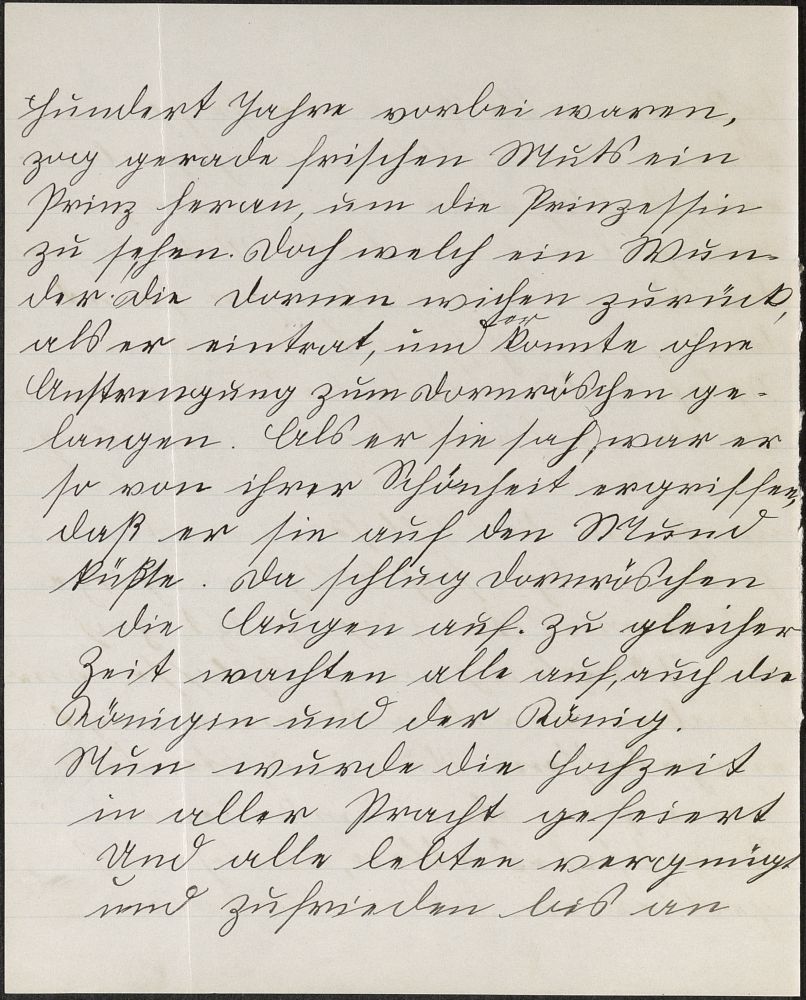 hundert Jahre vorbei waren,
zog gerade frischen Muts ein
Prinz heran, um die Prinzessin
zu sehen. Doch welch ein Wun-
der. Die Dornen wichen zurück,
als er eintrat, und er konnte ohne
Anstrengung zum Dornröschen ge-
langen. Als er sie sah, war er
so von ihrer Schönheit ergriffen,
daß er sie auf den Mund
küßte. Da schlug Dornröschen
die Augen auf. Zu gleicher
Zeit wachten alle auf, auch die
Königin und der König.
Nun wurde die Hochzeit
in aller Pracht gefeiert
Und alle lebten vergnügt
und zufrieden bis an